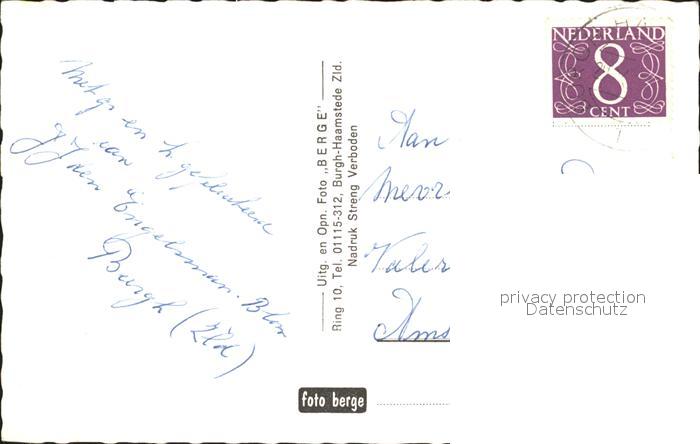 NEDERLAND
8
CENT
Met gr. en h. gefeliciteerd
van
den Engelsman-Blom
Burgh (Zld)
Uitg. en Opn. Foto „BERGE"
Ring 10, Tel. 01115-312, Burgh-Haamstede Zld.
Nadruk Streng Verboden
Aan
Mevr.
Valer
Ams
privacy protection
Datenschutz
foto berge